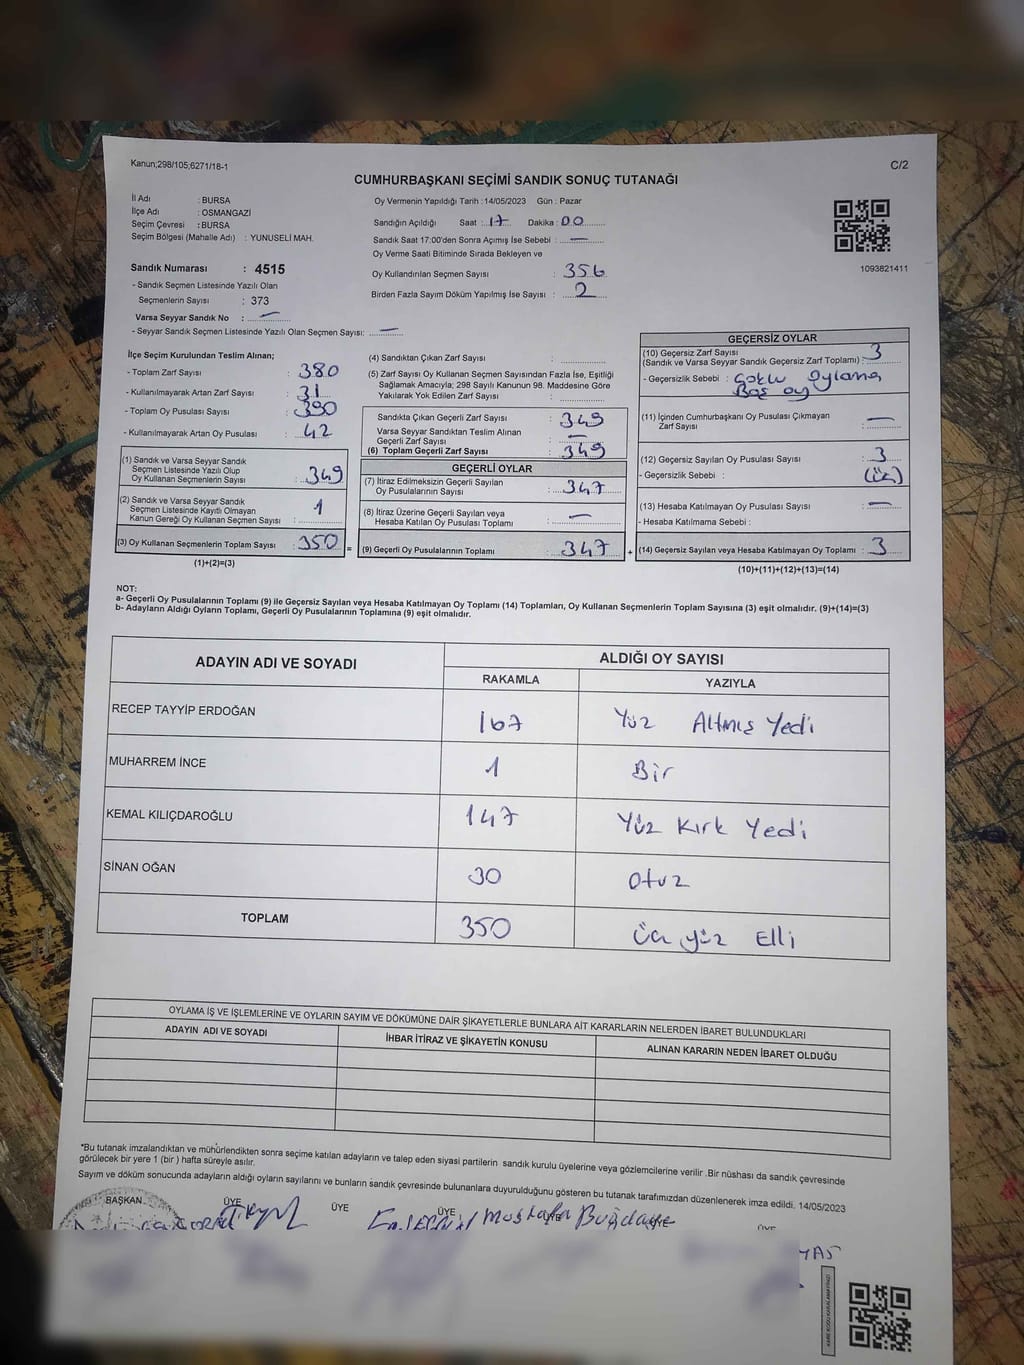 Kanun;298/105;6271/18-1
C/2
CUMHURBAŞKANI SEÇİMİ SANDIK SONUÇ TUTANAĞI
İl Adı : BURSA
İlçe Adı : OSMANGAZİ
Seçim Çevresi : BURSA
Seçim Bölgesi (Mahalle Adı) : YUNUSELİ MAH.
Oy Vermenin Yapıldığı Tarih :14/05/2023 Gün : Pazar
Sandığın Açıldığı Saat : 17 Dakika : 00
Sandık Saat 17:00'den Sonra Açımış İse Sebebi : —
Oy Verme Saati Bitiminde Sırada Bekleyen ve
Oy Kullandırılan Seçmen Sayısı : 356
Birden Fazla Sayım Döküm Yapılmış İse Sayısı : 2
1093821411
Sandık Numarası : 4515
- Sandık Seçmen Listesinde Yazılı Olan
Seçmenlerin Sayısı : 373
Varsa Seyyar Sandık No : —
- Seyyar Sandık Seçmen Listesinde Yazılı Olan Seçmen Sayısı: —
İlçe Seçim Kurulundan Teslim Alınan;
- Toplam Zarf Sayısı : 380
- Kullanılmayarak Artan Zarf Sayısı : 31
- Toplam Oy Pusulası Sayısı : 390
- Kullanılmayarak Artan Oy Pusulası : 42
(1) Sandık ve Varsa Seyyar Sandık
Seçmen Listesinde Yazılı Olup
Oy Kullanan Seçmenlerin Sayısı : 349
(2) Sandık ve Varsa Seyyar Sandık
Seçmen Listesinde Kayıtlı Olmayan
Kanun Gereği Oy Kullanan Seçmen Sayısı : 1
(3) Oy Kullanan Seçmenlerin Toplam Sayısı : 350 =
(1)+(2)=(3)
(4) Sandıktan Çıkan Zarf Sayısı :
(5) Zarf Sayısı Oy Kullanan Seçmen Sayısından Fazla İse, Eşitliği
Sağlamak Amacıyla; 298 Sayılı Kanunun 98. Maddesine Göre
Yakılarak Yok Edilen Zarf Sayısı :
Sandıkta Çıkan Geçerli Zarf Sayısı : 349
Varsa Seyyar Sandıktan Teslim Alınan
Geçerli Zarf Sayısı : —
(6) Toplam Geçerli Zarf Sayısı : 349
GEÇERLİ OYLAR
(7) İtiraz Edilmeksizin Geçerli Sayılan
Oy Pusulalarının Sayısı : 347
(8) İtiraz Üzerine Geçerli Sayılan veya
Hesaba Katılan Oy Pusulası Toplamı : —
(9) Geçerli Oy Pusulalarının Toplamı : 347 +
GEÇERSİZ OYLAR
(10) Geçersiz Zarf Sayısı
(Sandık ve Varsa Seyyar Sandık Geçersiz Zarf Toplamı) : 3
- Geçersizlik Sebebi : Çoklu Oylama
Boş oy
(11) İçinden Cumhurbaşkanı Oy Pusulası Çıkmayan
Zarf Sayısı : —
(12) Geçersiz Sayılan Oy Pusulası Sayısı : 3
- Geçersizlik Sebebi : (üç)
(13) Hesaba Katılmayan Oy Pusulası Sayısı : —
- Hesaba Katılmama Sebebi :
(14) Geçersiz Sayılan veya Hesaba Katılmayan Oy Toplamı : 3
(10)+(11)+(12)+(13)=(14)
NOT:
a- Geçerli Oy Pusulalarının Toplamı (9) ile Geçersiz Sayılan veya Hesaba Katılmayan Oy Toplamı (14) Toplamları, Oy Kullanan Seçmenlerin Toplam Sayısına (3) eşit olmalıdır. (9)+(14)=(3)
b- Adayların Aldığı Oyların Toplamı, Geçerli Oy Pusulalarının Toplamına (9) eşit olmalıdır.
ADAYIN ADI VE SOYADI ALDIĞI OY SAYISI
RAKAMLA YAZIYLA
RECEP TAYYİP ERDOĞAN 167 Yüz Altmış Yedi
MUHARREM İNCE 1 Bir
KEMAL KILIÇDAROĞLU 147 Yüz Kırk Yedi
SİNAN OĞAN 30 Otuz
TOPLAM 350 Üç yüz Elli
OYLAMA İŞ VE İŞLEMLERİNE VE OYLARIN SAYIM VE DÖKÜMÜNE DAİR ŞİKAYETLERLE BUNLARA AİT KARARLARIN NELERDEN İBARET BULUNDUKLARI
ADAYIN ADI VE SOYADI İHBAR İTİRAZ VE ŞİKAYETİN KONUSU ALINAN KARARIN NEDEN İBARET OLDUĞU
*Bu tutanak imzalandıktan ve mühürlendikten sonra seçime katılan adayların ve talep eden siyasi partilerin sandık kurulu üyelerine veya gözlemcilerine verilir .Bir nüshası da sandık çevresinde
görülecek bir yere 1 (bir ) hafta süreyle asılır.
Sayım ve döküm sonucunda adayların aldığı oyların sayılarını ve bunların sandık çevresinde bulunanlara duyurulduğunu gösteren bu tutanak tarafımızdan düzenlenerek imza edildi. 14/05/2023
BAŞKAN ÜYE ÜYE ÜYE ÜYE ÜYE ÜYE
Mustafa Buğdaye